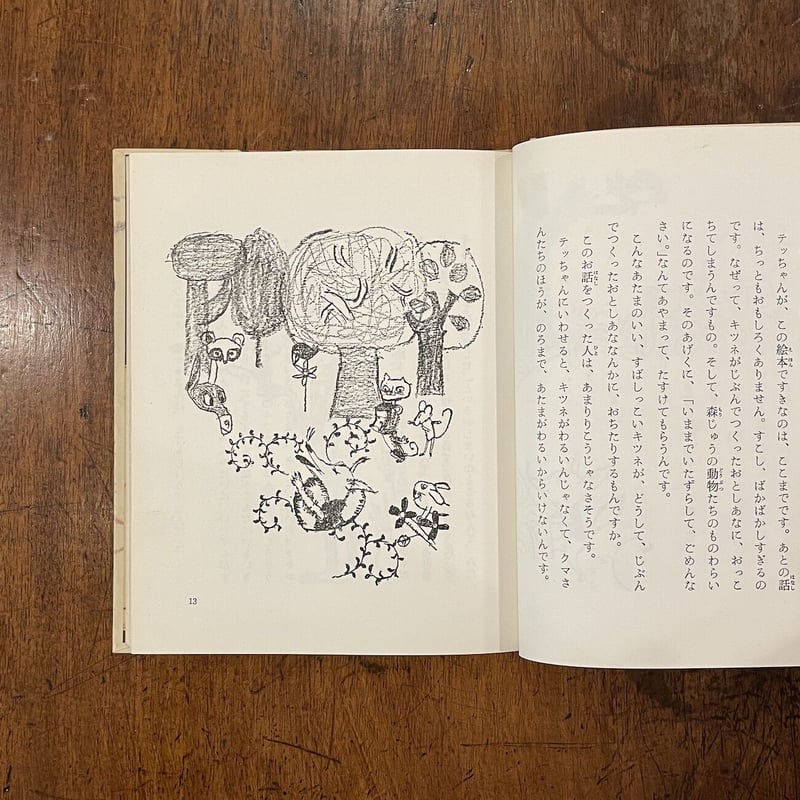 テッちゃんが、この絵本ですきなのは、ここまでです。あとの話
は、ちっともおもしろくありません。すこし、ばかばかしすぎるの
です。なぜって、キツネがじぶんでつくったおとしあなに、おっこ
ちてしまうんですもの。そして、森じゅうの動物たちのものわらい
になるのです。そのあげくに、「いままでいたずらして、ごめんな
さい。」なんてあやまって、たすけてもらうんです。
こんなあたまのいい、すばしっこいキツネが、どうして、じぶん
でつくったおとしあななんかに、おちたりするもんですか。
このお話をつくった人は、あまりりこうじゃなさそうです。
テッちゃんにいわせると、キツネがわるいんじゃなくて、クマさ
んたちのほうが、のろまで、あたまがわるいからいけないんです。
13